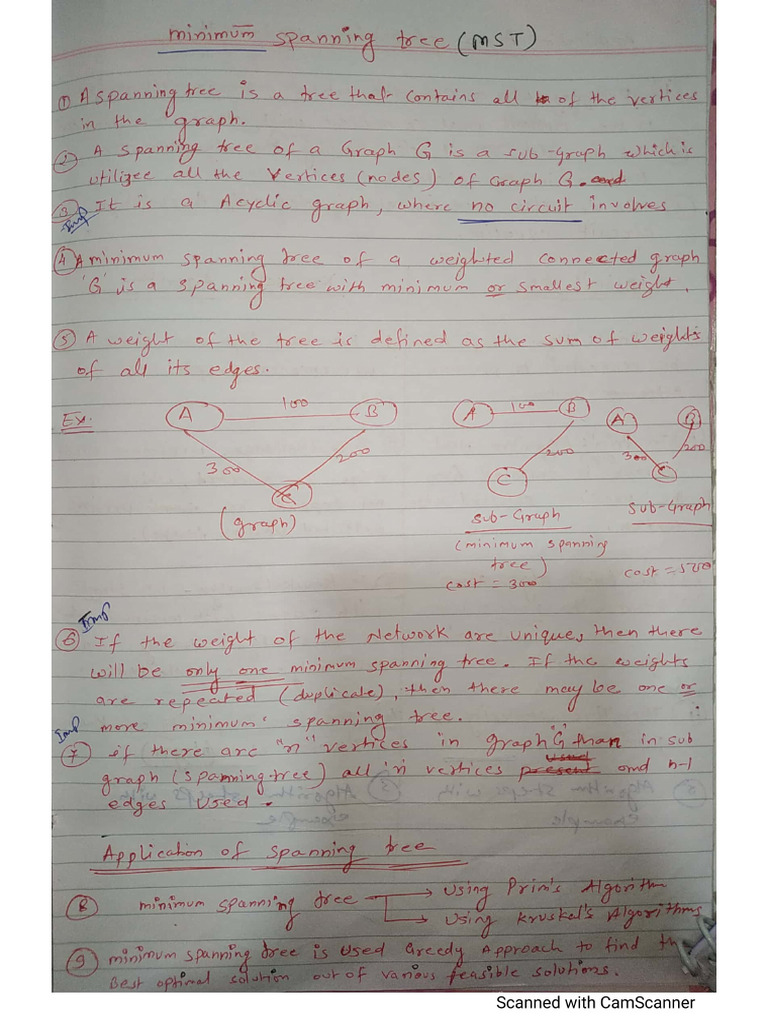 minimum spanning tree (MST)
① A spanning tree is a tree that contains all of the vertices
in the graph.
② A spanning tree of a Graph G is a sub-Graph which is
utilizee all the vertices (nodes) of Graph G. and
③ It is a Acyclic graph, where no circuit involves
Imp
④ A minimum spanning tree of a weighted connected graph
'G' is a spanning tree with minimum or smallest weight.
⑤ A weight of the tree is defined as the sum of weights
of all its edges.
Ex.
A 100 B
300 200
C
(graph)
A 100 B
200
C
Sub-Graph
(minimum spanning
tree)
cost = 300
A B
300 200
C
Sub-Graph
cost = 500
Imp
⑥ If the weight of the Network are unique, then there
will be only one minimum spanning tree. If the weights
are repeated (duplicate), then there may be one or
more minimum spanning tree.
Imp
⑦ if there are "n" vertices in graph "G" than in sub
graph (spanning-tree) all 'n' vertices present used and n-1
edges used.
Application of spanning tree
⑧ minimum spanning tree → Using Prim's Algorithm
→ Using Kruskal's Algorithms
⑨ minimum spanning tree is used Greedy Approach to find
Best optimal solution out of various feasible solutions.
Scanned with CamScanner